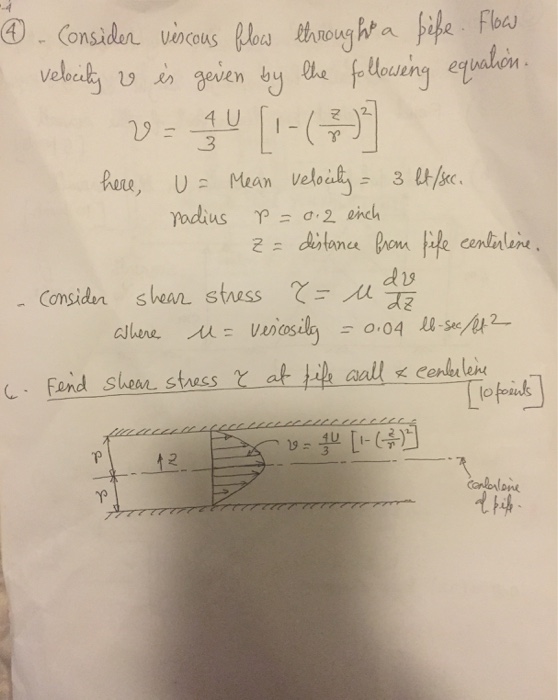 ④ - Consider viscous flow through a pipe. Flow
velocity v is geven by the following equation.
v = 4U/3 [1 - (z/r)²]
here, U = Mean velocity = 3 ft/sec.
radius r = 0.2 einch
z = distance from pipe centerleine.
- Consider shear stress τ = μ dv/dz
where μ = veiscosity = 0.04 lb-sec/ft²
C. Feind shear stress τ at pipe wall & centerleine
[10 points]
r
r
↑z
v = 4U/3 [1 - (z/r)²]
centerleine
of pipe.